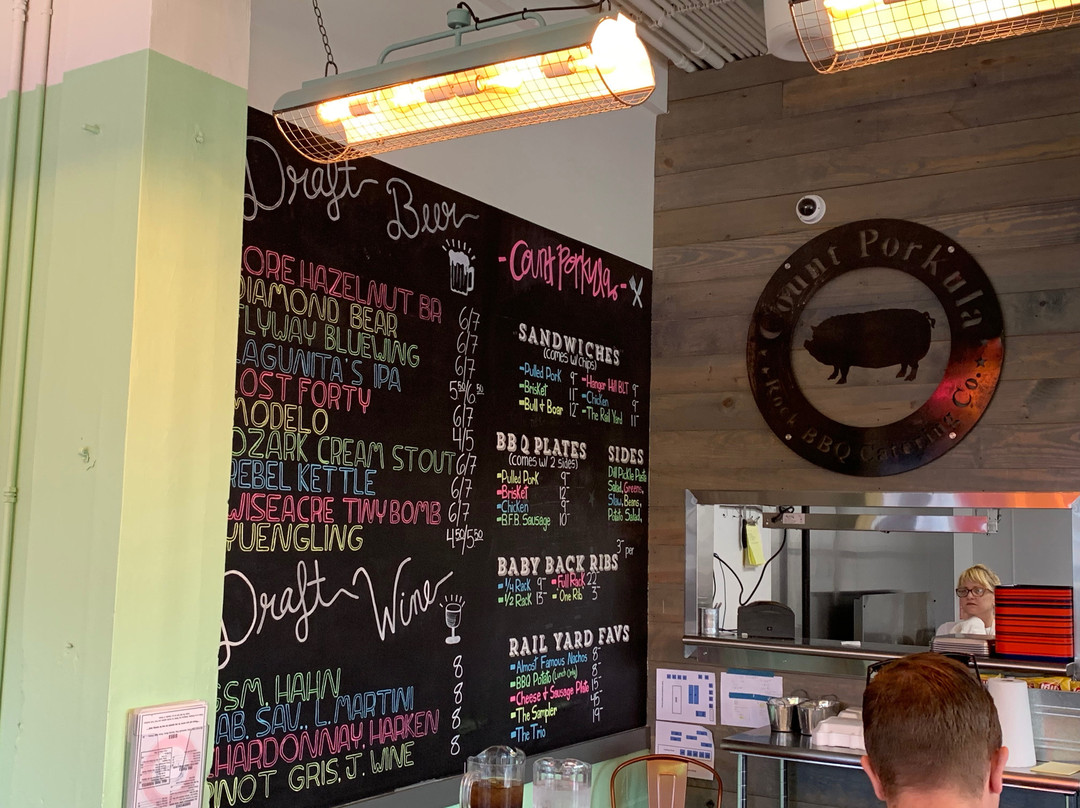 Draft Beer
ORE HAZELNUT BR 6/7
DIAMOND BEAR 6/7
FLYWAY BLUEWING 6/7
LAGUNITA'S IPA 5⁵⁰/6⁵⁰
LOST FORTY 6/7
MODELO 4/5
OZARK CREAM STOUT 6/7
REBEL KETTLE 6/7
WISEACRE TINY BOMB 6/7
YUENGLING 4⁵⁰/5⁵⁰
Draft Wine
GSM, HAHN 8
CAB. SAV., L. MARTINI 8
CHARDONNAY, HARKEN 8
PINOT GRIS, J. WINE 8
-Count Porkula-
SANDWICHES
(comes w/ chips)
-Pulled Pork 9- -Hanger Hill BLT 9-
-Brisket 11- -Chicken 9-
-Bull & Boar 12- -The Rail Yard 11-
BBQ PLATES
(comes w/ 2 sides)
-Pulled Pork 9-
-Brisket 12-
-Chicken 9-
-B.F.B. Sausage 10-
SIDES
Dill Pickle Pasta
Salad, Greens,
Slaw, Beans,
Potato Salad,
3- per
BABY BACK RIBS
-1/4 Rack 9- -Full Rack 22-
-1/2 Rack 13- -'One Rib' 3-
RAIL YARD FAVS
-Almost Famous Nachos 8-
-BBQ Potato (Lunch Only) 8-
-Cheese & Sausage Plate 15-
-The Sampler 45-
-The Trio 19-
Count Porkula
Rock BBQ Catering Co.